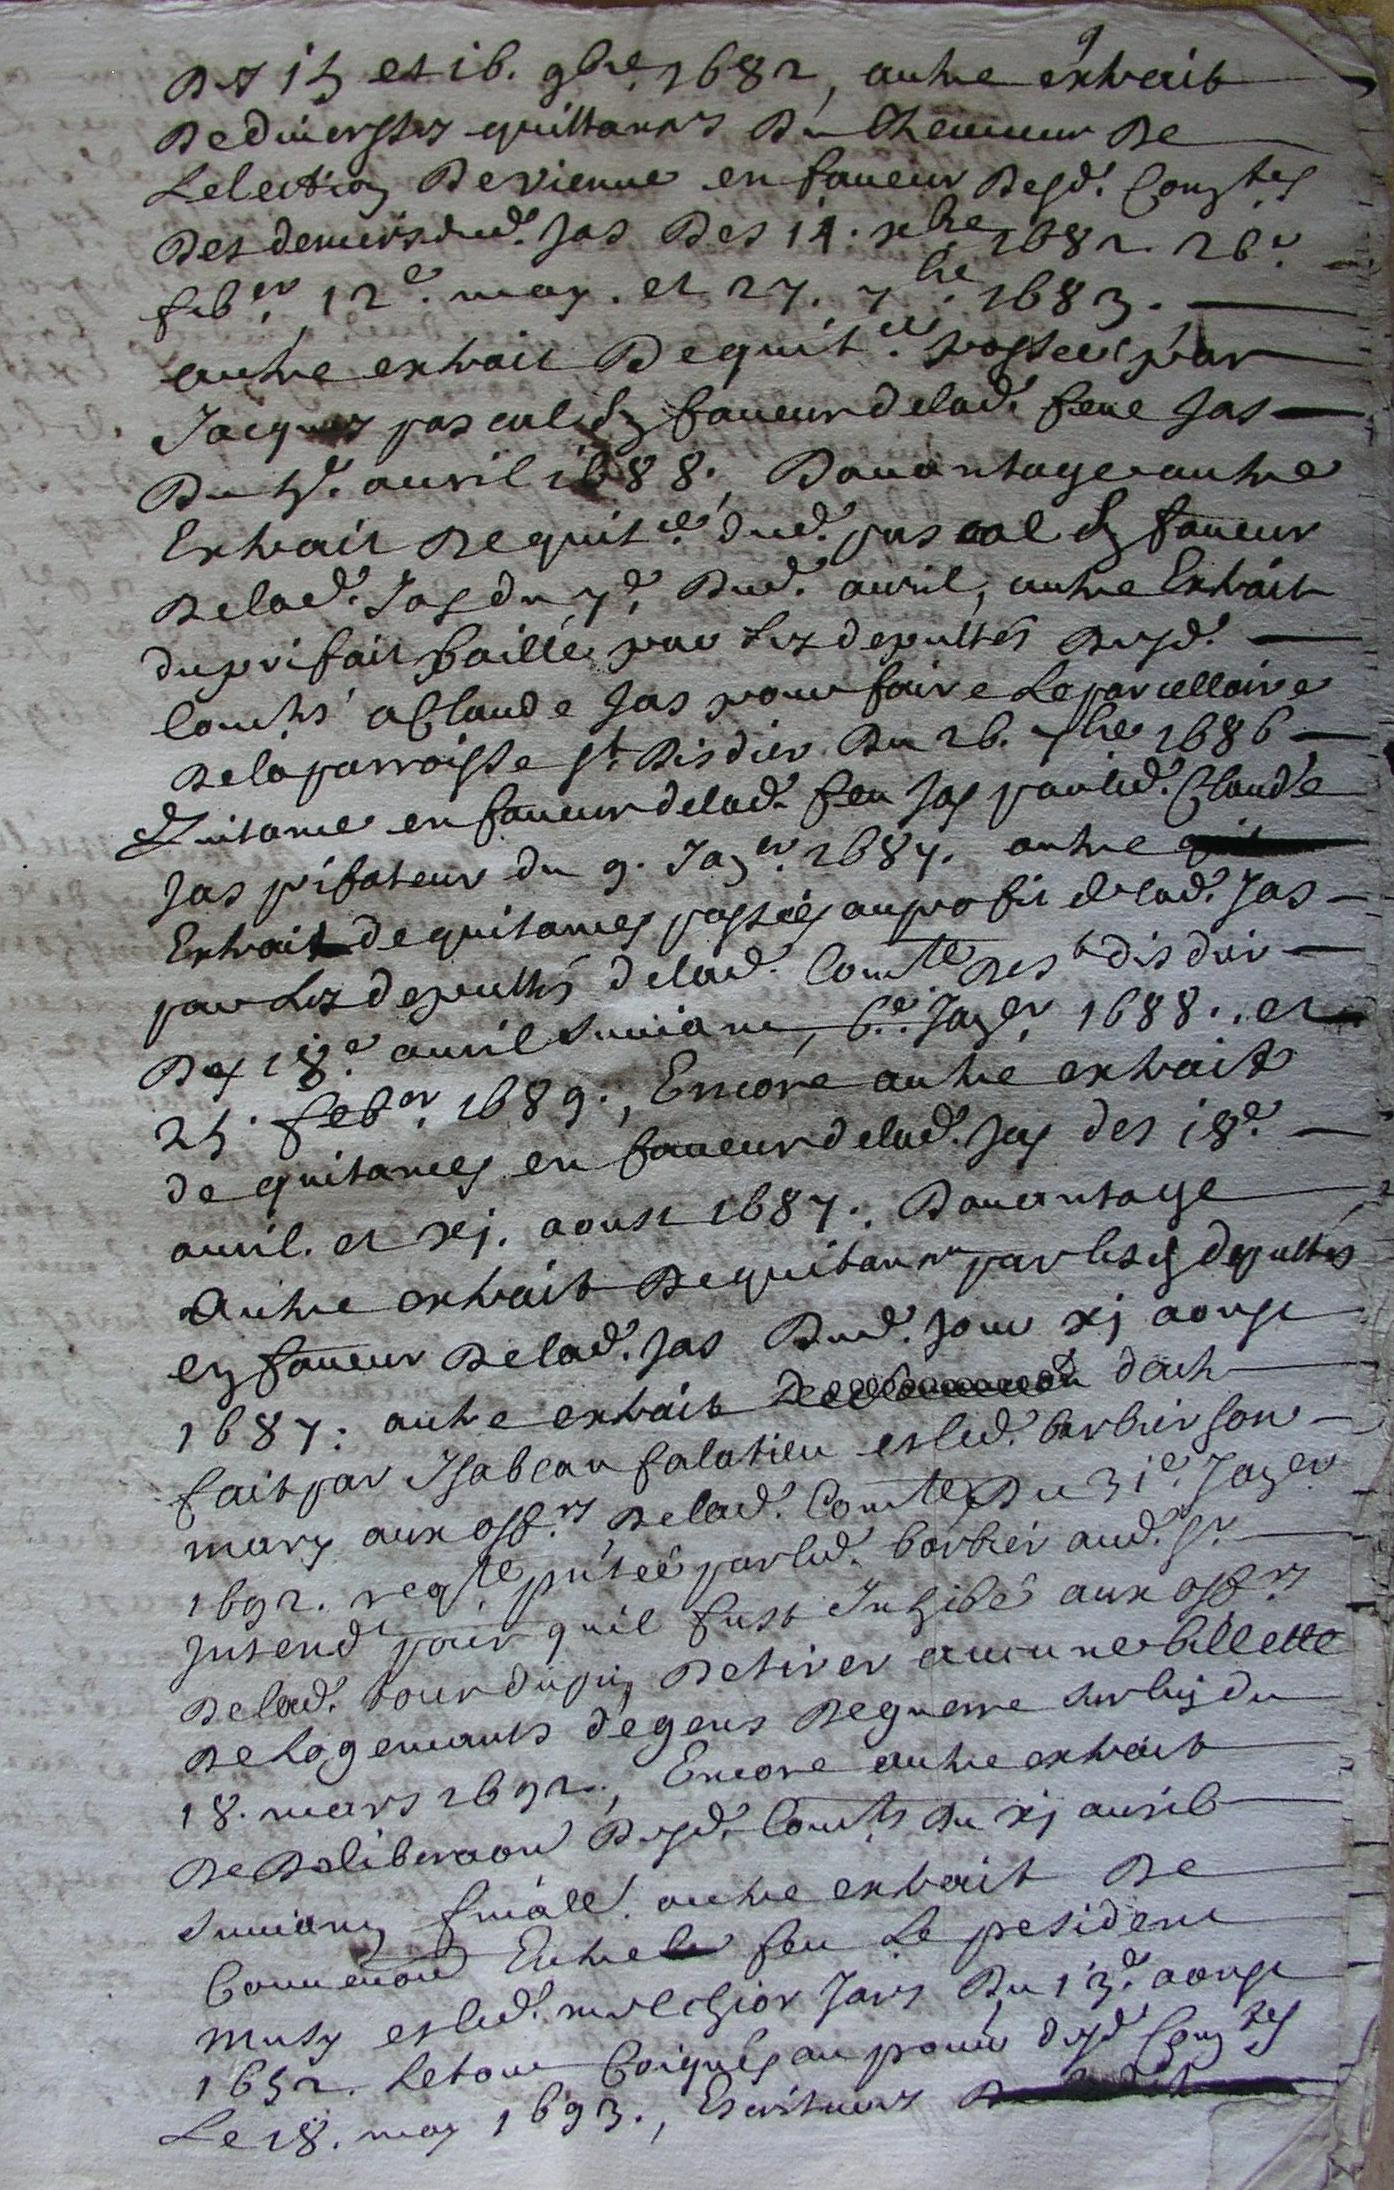 Des 15 et 16. 9bre 1682, autre extrait
De diverses quittances Du Receveur De
Lelection De vienne en faveur Desd. Com.tes
Des deniers dud. Jas Des 14. xbre 1682. 26.e
feb.er, 12.e may. et 27. 7bre 1683.
autre extrait De quit.ce passee par
Jacques pascal En faveur de lad. feue Jas
Du 5.e avril 1688., Davantage autre
Extrait De quit.ce dud. pascal En faveur
De lad. Jas du 7.e Dud. avril, autre Extrait
du prifait baillé par Les deputtés Desd.
Com.tés a Claude Jas pour faire Le parcellaire
De la parroisse St Disdier Du 26. 7bre 1686
Quitance en faveur de lad. feu Jas par led. Claude
Jas prifateur du 9. Janer. 1687. autre
Extrait de quitances passées au profit de lad. Jas
par Les deputtés de lad. Com.te De St disdier
Des 18.e avril Suivant, 6.e Janer. 1688., et
25. feb.er 1689., Encore autre extrait
de quitances en faveur de lad. Jas des 18.e
avril. et xj. aoust 1687., Davantage
Autre extrait De quitance par les deputtés
en faveur De lad. Jas Dud. jour xj aoust
1687: autre extrait d'acte
fait par Isabeau falatieu et led. barbier son
mary aux off.rs De lad. Com.te Du 31.e Janer
1692. req.te pntée par led. barbier aud. Sr.
Intend.t pour quil fust Inhibé aux off.rs
De lad. tour du pin De tirer aucune billette
De Logements de gens De guerre sur luy du
18. mars 1692., Encore autre extrait
De Deliberaon Desd. Com.tés Du xj avril
Suivant autre extrait De
Convention Entre feu Le president
Musy et led. melchior Jars Du 13.e aoust
1652. Le tout au desd. Com.tes
Le 18. may 1693., Escritures